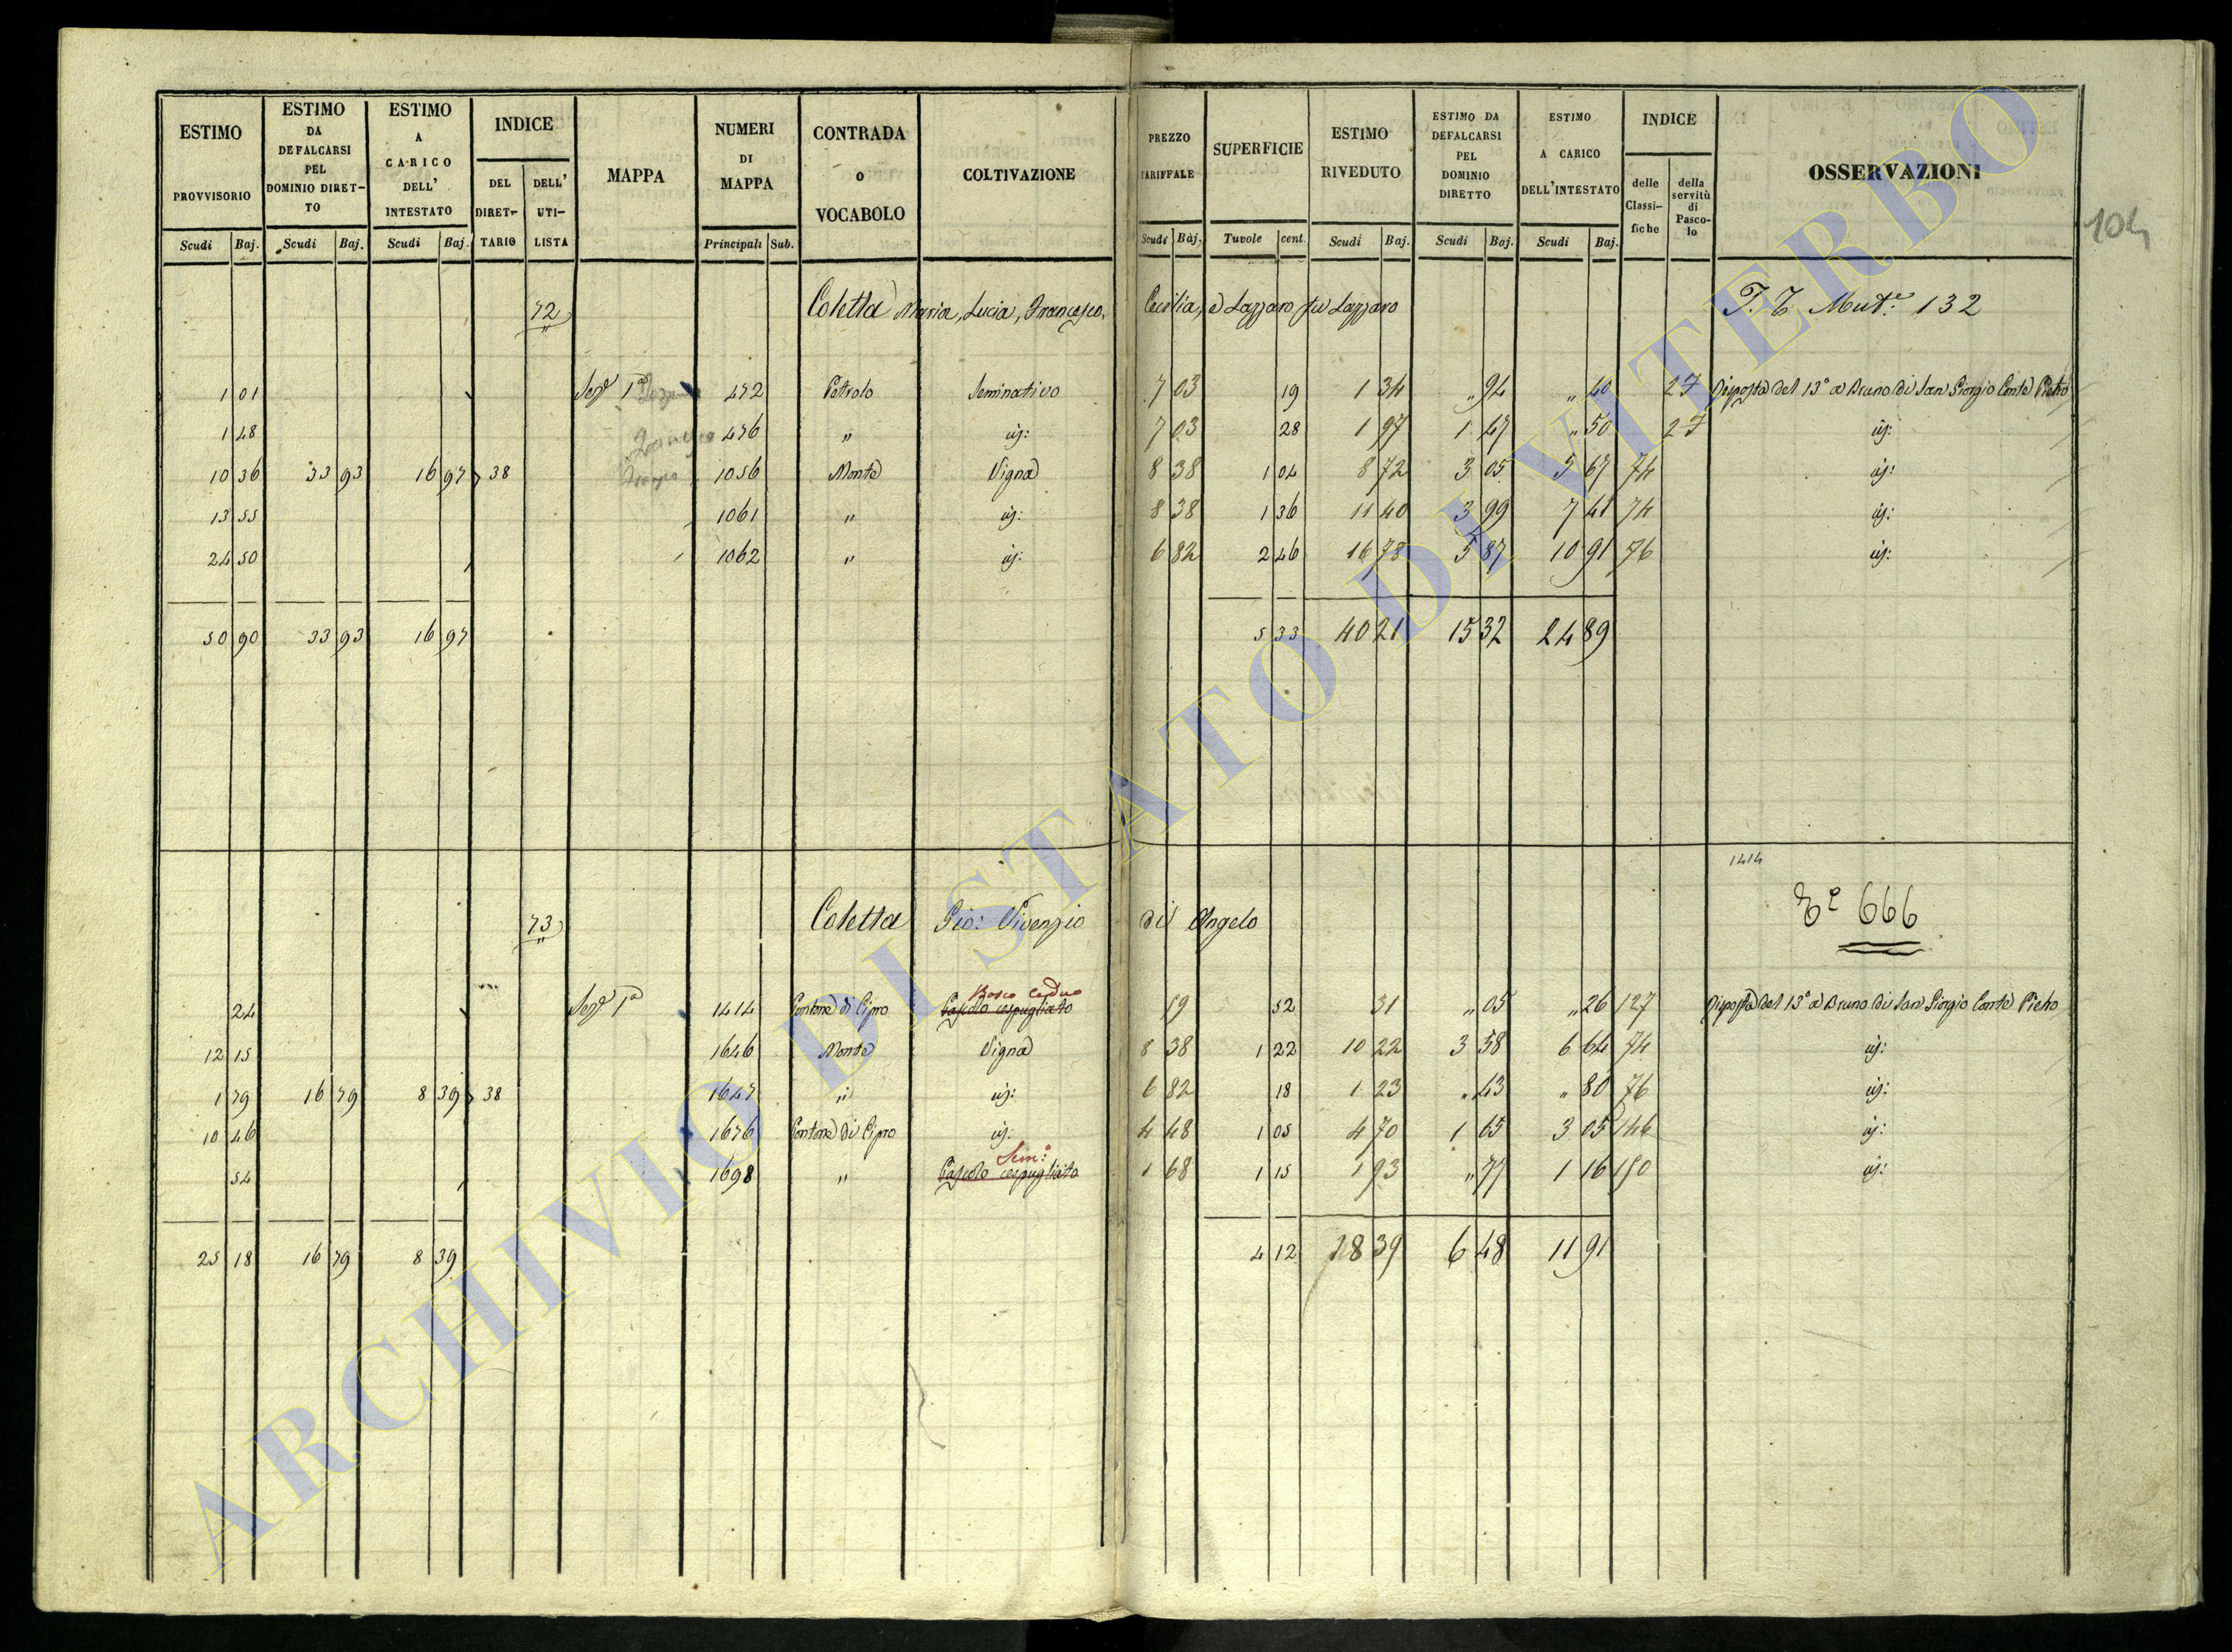 ESTIMO PROVVISORIO Scudi Baj.
ESTIMO DA DEFALCARSI PEL DOMINIO DIRET-TO Scudi Baj.
ESTIMO A CARICO DELL' INTESTATO Scudi Baj.
INDICE DEL DIRET-TARIO DELL' UTI-LISTA
MAPPA
NUMERI DI MAPPA Principali Sub.
CONTRADA O VOCABOLO
COLTIVAZIONE
PREZZO TARIFFALE Scudi Baj.
SUPERFICIE Tavole cent.
ESTIMO RIVEDUTO Scudi Baj.
ESTIMO DA DEFALCARSI PEL DOMINIO DIRETTO Scudi Baj.
ESTIMO A CARICO DELL'INTESTATO Scudi Baj.
INDICE delle Classi-fiche della servitù di Pasco-lo
OSSERVAZIONI
104
72 Coletta Maria, Lucia, Francesco, Cecilia, e Lazzaro fu Lazzaro Mut.e 132
1 01 Sez.e 1a 472 Petrolo Seminativo 7 03 19 1 34 " 94 " 40 27 Risposta del 13° a Bruno di San Giorgio Conte Pietro
1 48 476 " id: 7 03 28 1 97 1 47 " 50 27 id:
10 36 33 93 16 97 38 1056 Monte Vigna 8 38 1 04 8 72 3 05 5 67 74 id:
13 55 1061 " id: 8 38 1 36 11 40 3 99 7 41 74 id:
24 50 1062 " id: 6 82 2 46 16 78 5 87 10 91 76 id:
50 90 33 93 16 97 5 33 40 21 15 32 24 89
1414
73 Coletta Gio: Vivenzio di Angelo 666
Bosco Ceduo
24 Sez.e 1a 1414 Pontone di Cipro Pascolo cespugliato 59 52 31 " 05 " 26 127 Risposta del 13° a Bruno di San Giorgio Conte Pietro
12 15 1646 Monte Vigna 8 38 1 22 10 22 3 58 6 64 74 id:
1 79 16 79 8 39 38 1647 " id: 6 82 18 1 23 " 43 " 80 76 id:
10 46 1676 Pontone di Cipro id: 4 48 1 05 4 70 1 65 3 05 146 id:
Sem:o
54 1698 " Pascolo cespugliato 1 68 1 15 1 93 " 77 1 16 150 id:
25 18 16 79 8 39 4 12 18 39 6 48 11 91
ARCHIVIO DI STATO DI VITERBO